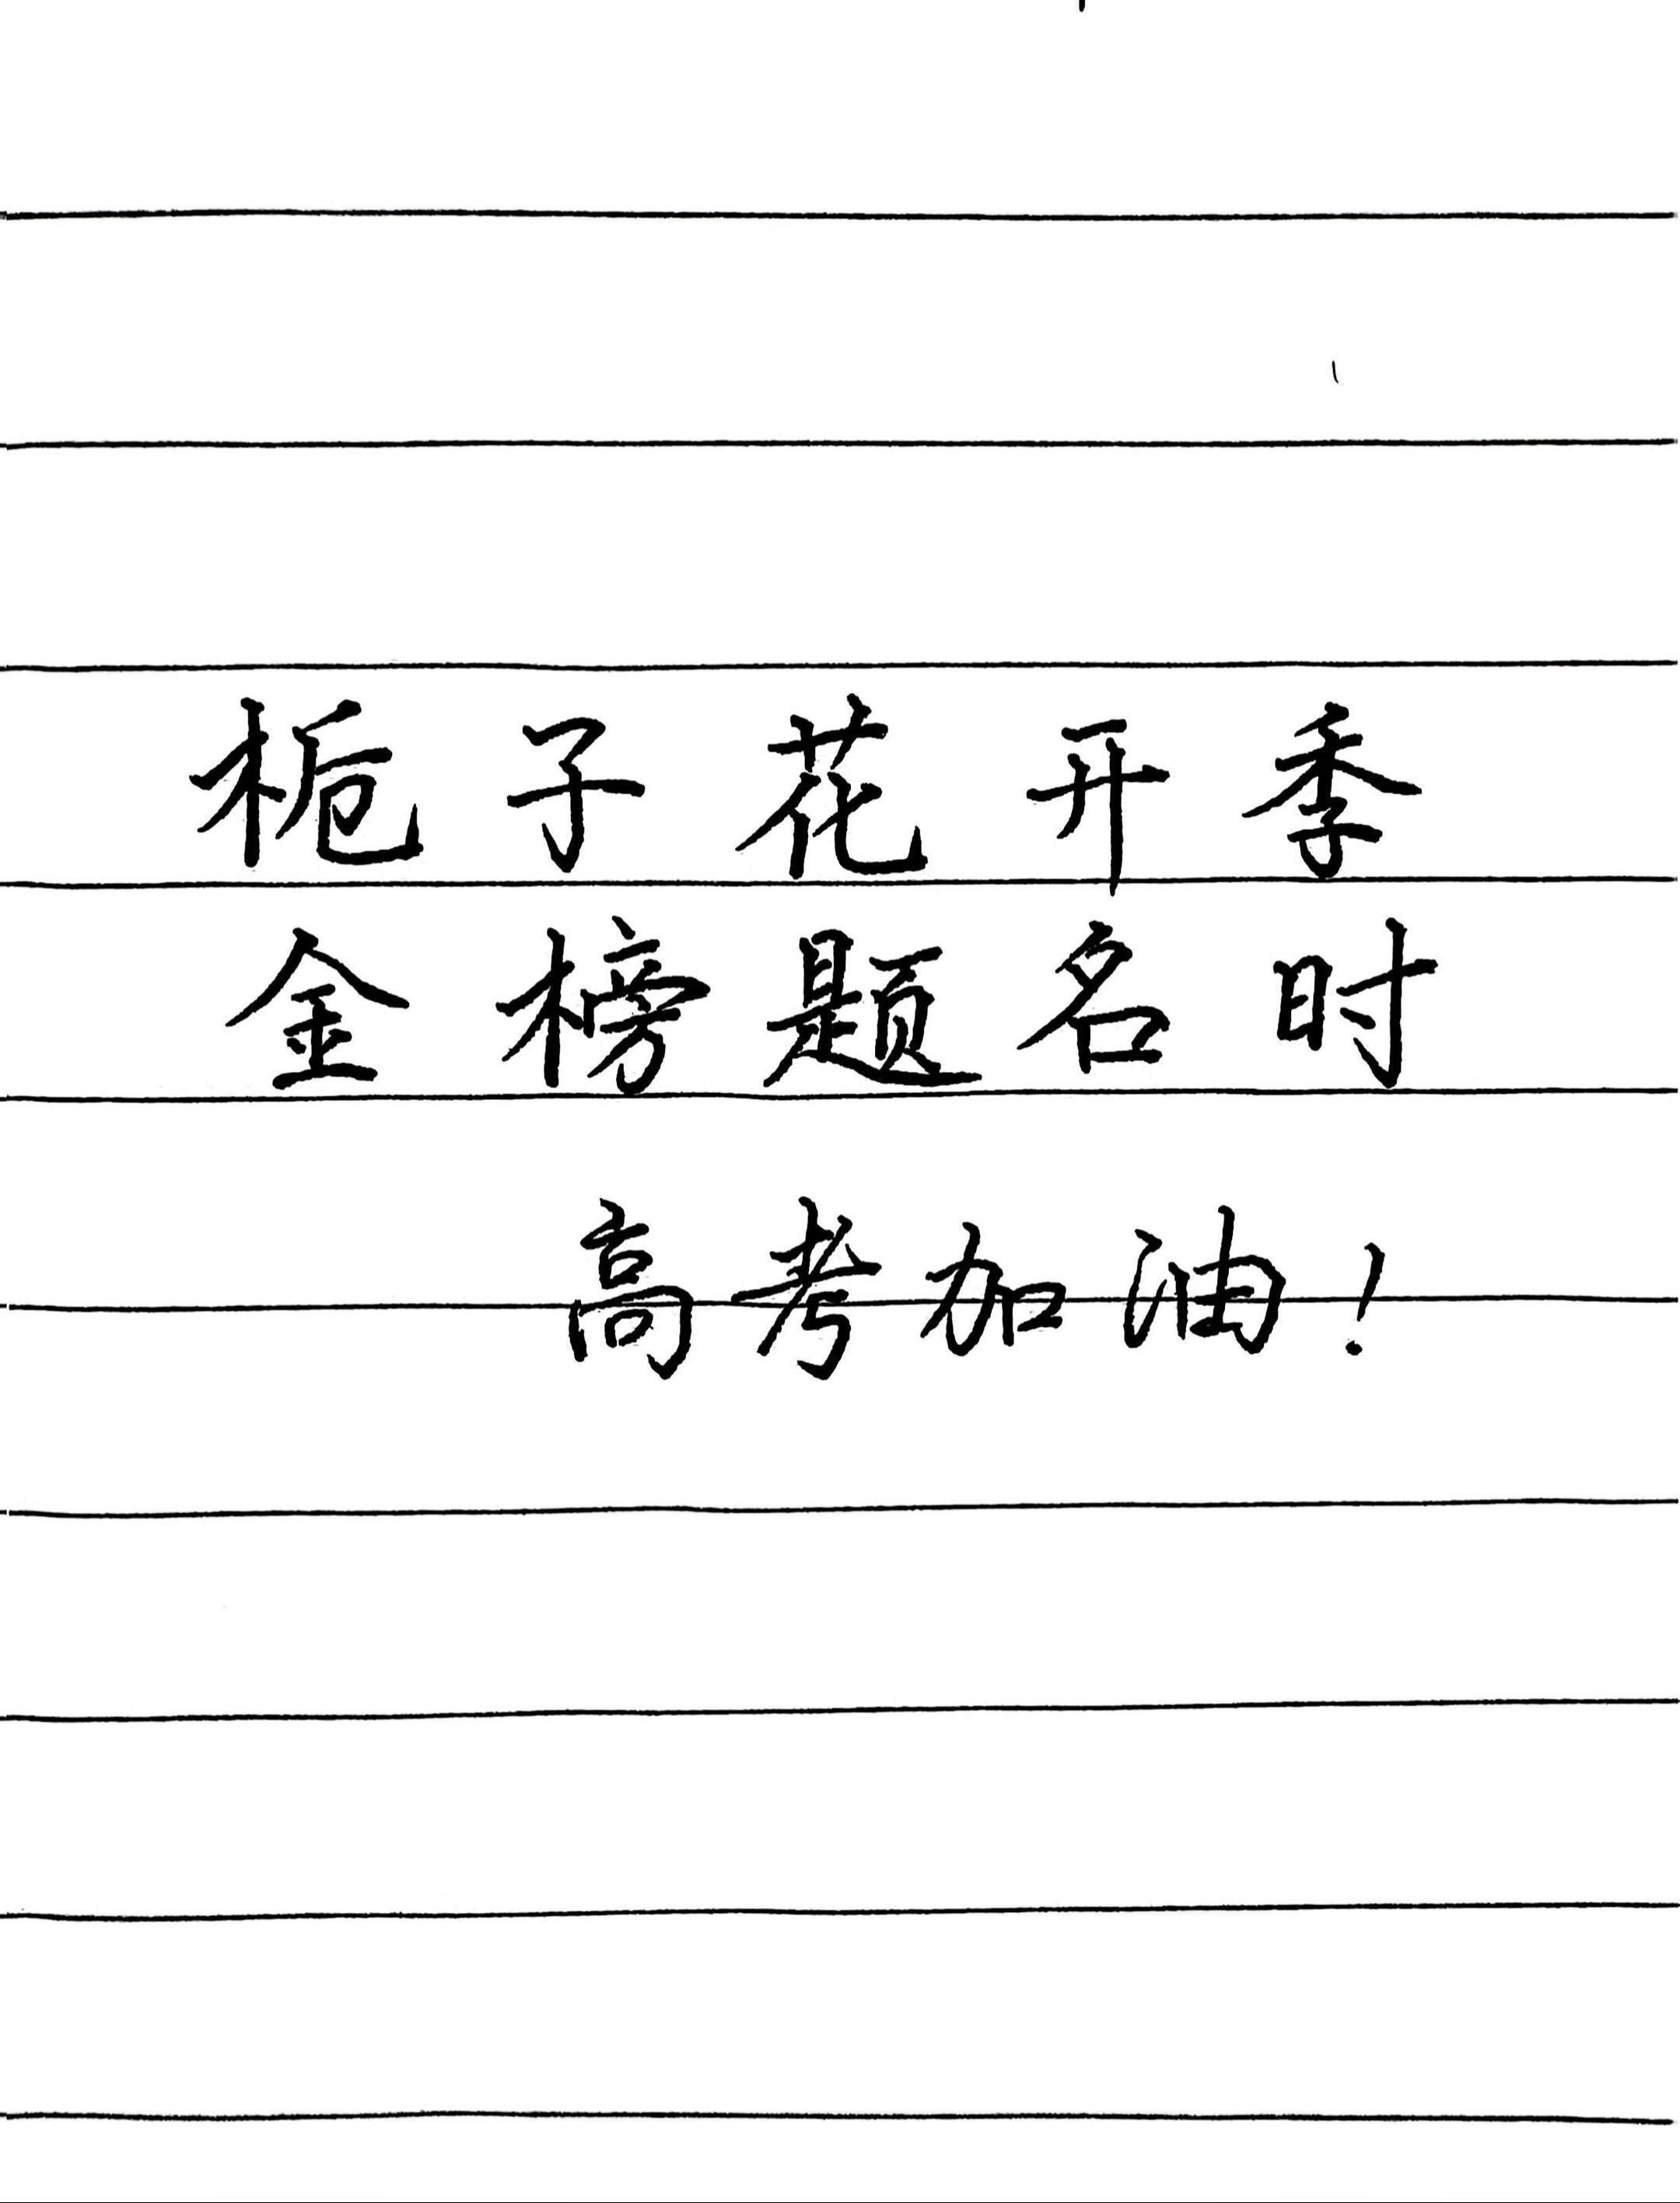 栀子花开季
金榜题名时
高考加油!